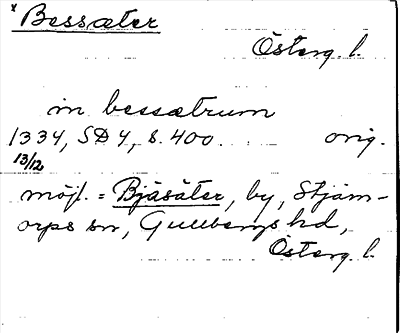 * Bessæter
Österg. l.
in bessætrum
1334, SD 4, s. 400. orig.
13/12
möjl. = Bjäsäter, by, Stjärn-
orps sn, Gullbergs hd,
Österg. l.